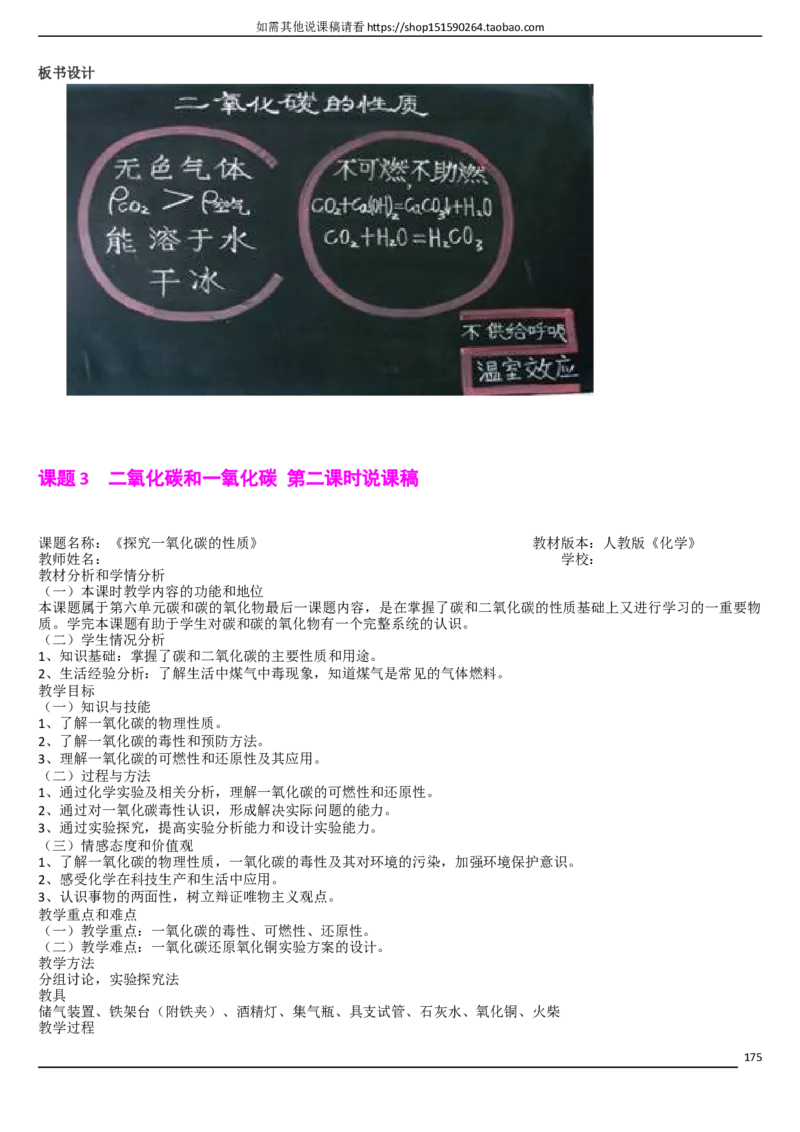 如需其他说课稿请看 https://shop151590264.taobao.com
板书设计
二氧化碳的性质
无色气体
ρCO₂ > ρ空气
能溶于水
干冰
不可燃,不助燃
CO₂+Ca(OH)₂=CaCO₃↓+H₂O
CO₂+H₂O=H₂CO₃
不供给呼吸
温室效应
课题 3 二氧化碳和一氧化碳 第二课时说课稿
课题名称：《探究一氧化碳的性质》 教材版本：人教版《化学》
教师姓名： 学校：
教材分析和学情分析
（一）本课时教学内容的功能和地位
本课题属于第六单元碳和碳的氧化物最后一课题内容，是在掌握了碳和二氧化碳的性质基础上又进行学习的一重要物
质。学完本课题有助于学生对碳和碳的氧化物有一个完整系统的认识。
（二）学生情况分析
1、知识基础：掌握了碳和二氧化碳的主要性质和用途。
2、生活经验分析：了解生活中煤气中毒现象，知道煤气是常见的气体燃料。
教学目标
（一）知识与技能
1、了解一氧化碳的物理性质。
2、了解一氧化碳的毒性和预防方法。
3、理解一氧化碳的可燃性和还原性及其应用。
（二）过程与方法
1、通过化学实验及相关分析，理解一氧化碳的可燃性和还原性。
2、通过对一氧化碳毒性认识，形成解决实际问题的能力。
3、通过实验探究，提高实验分析能力和设计实验能力。
（三）情感态度和价值观
1、了解一氧化碳的物理性质，一氧化碳的毒性及其对环境的污染，加强环境保护意识。
2、感受化学在科技生产和生活中应用。
3、认识事物的两面性，树立辩证唯物主义观点。
教学重点和难点
（一）教学重点：一氧化碳的毒性、可燃性、还原性。
（二）教学难点：一氧化碳还原氧化铜实验方案的设计。
教学方法
分组讨论，实验探究法
教具
储气装置、铁架台（附铁夹）、酒精灯、集气瓶、具支试管、石灰水、氧化铜、火柴
教学过程
175